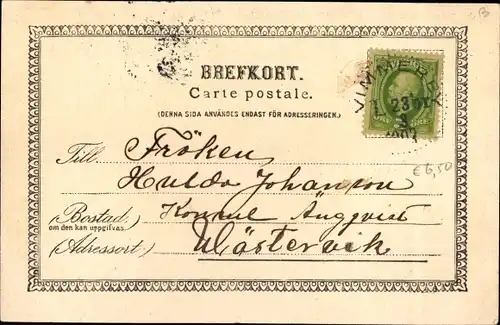 BREFKORT.
Carte postale.
(DENNA SIDA ANVÄNDES ENDAST FÖR ADRESSERINGEN.)
VIMMERBY
23
3
1903
€6,50
B
Till Fröken
Hulda Johanson
(Bostad: Konsul Ängqvist
om den kan uppgifvas)
(Adressort:) Wästervik